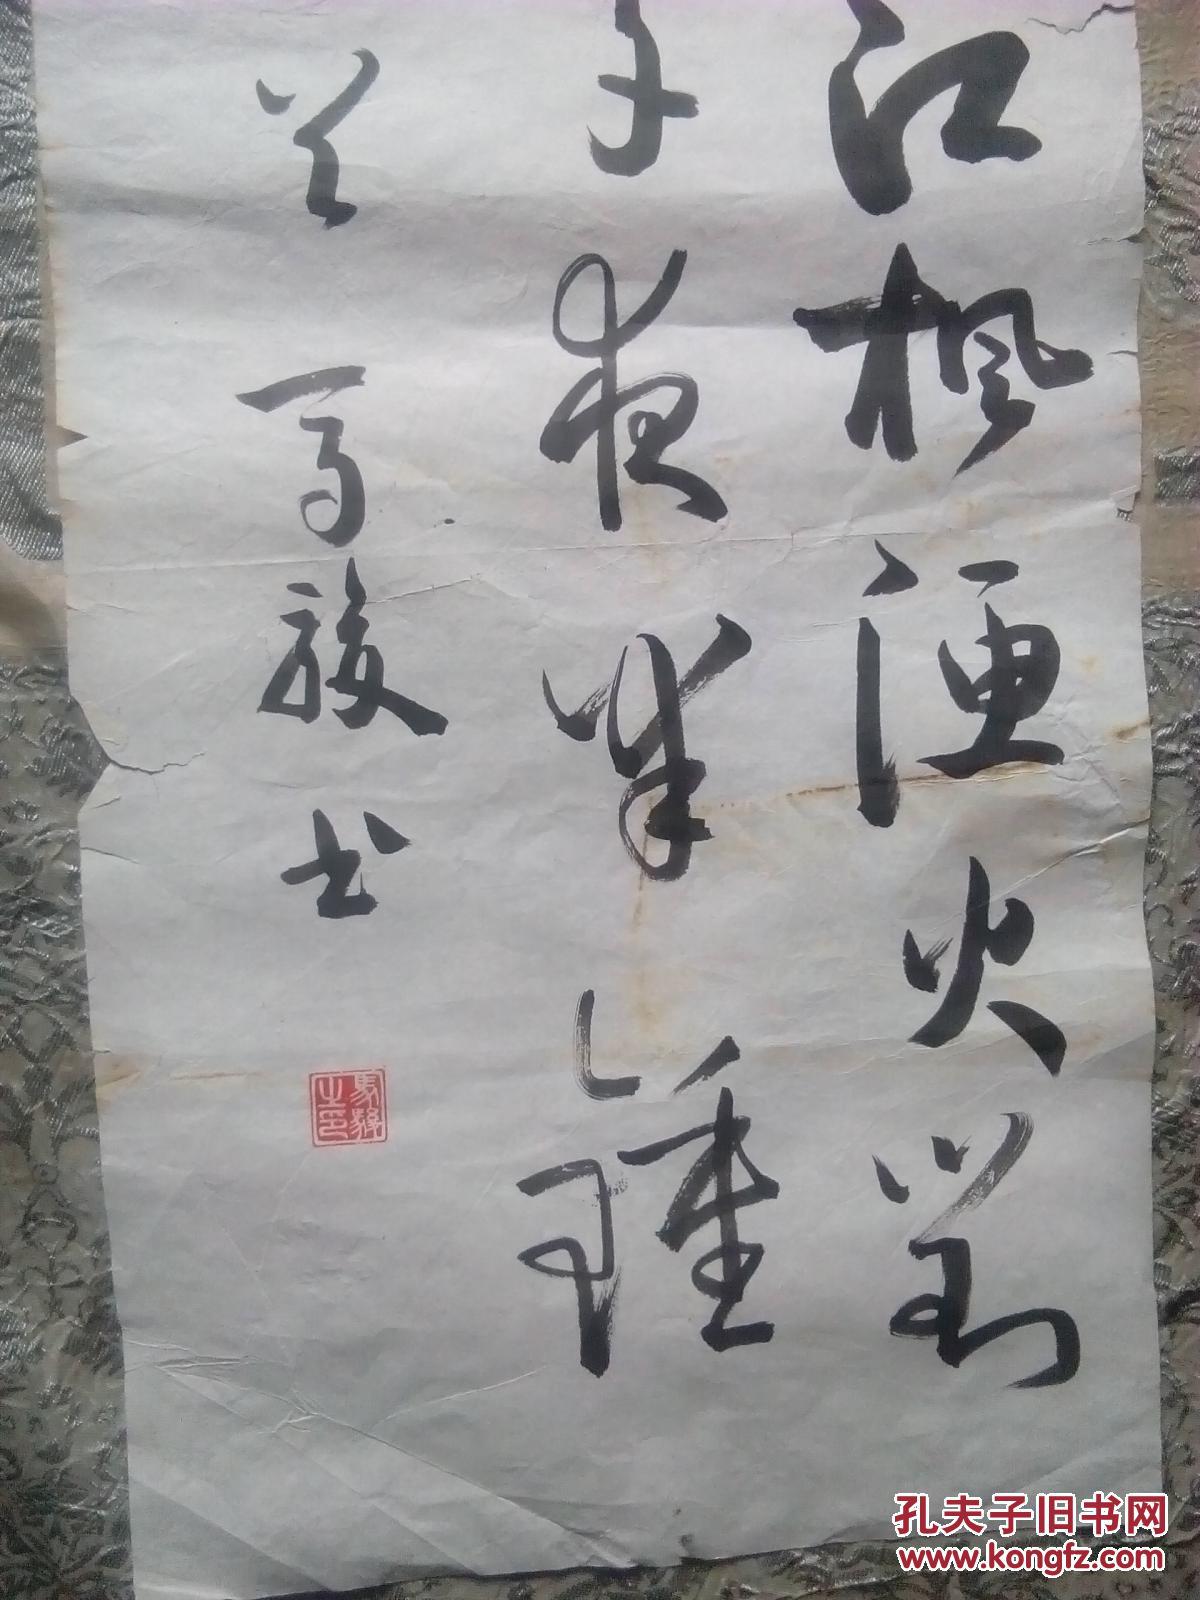 江枫渔火对
寺夜半鍾
马骏书
馬駿之印
孔夫子旧书网
www.kongfz.com